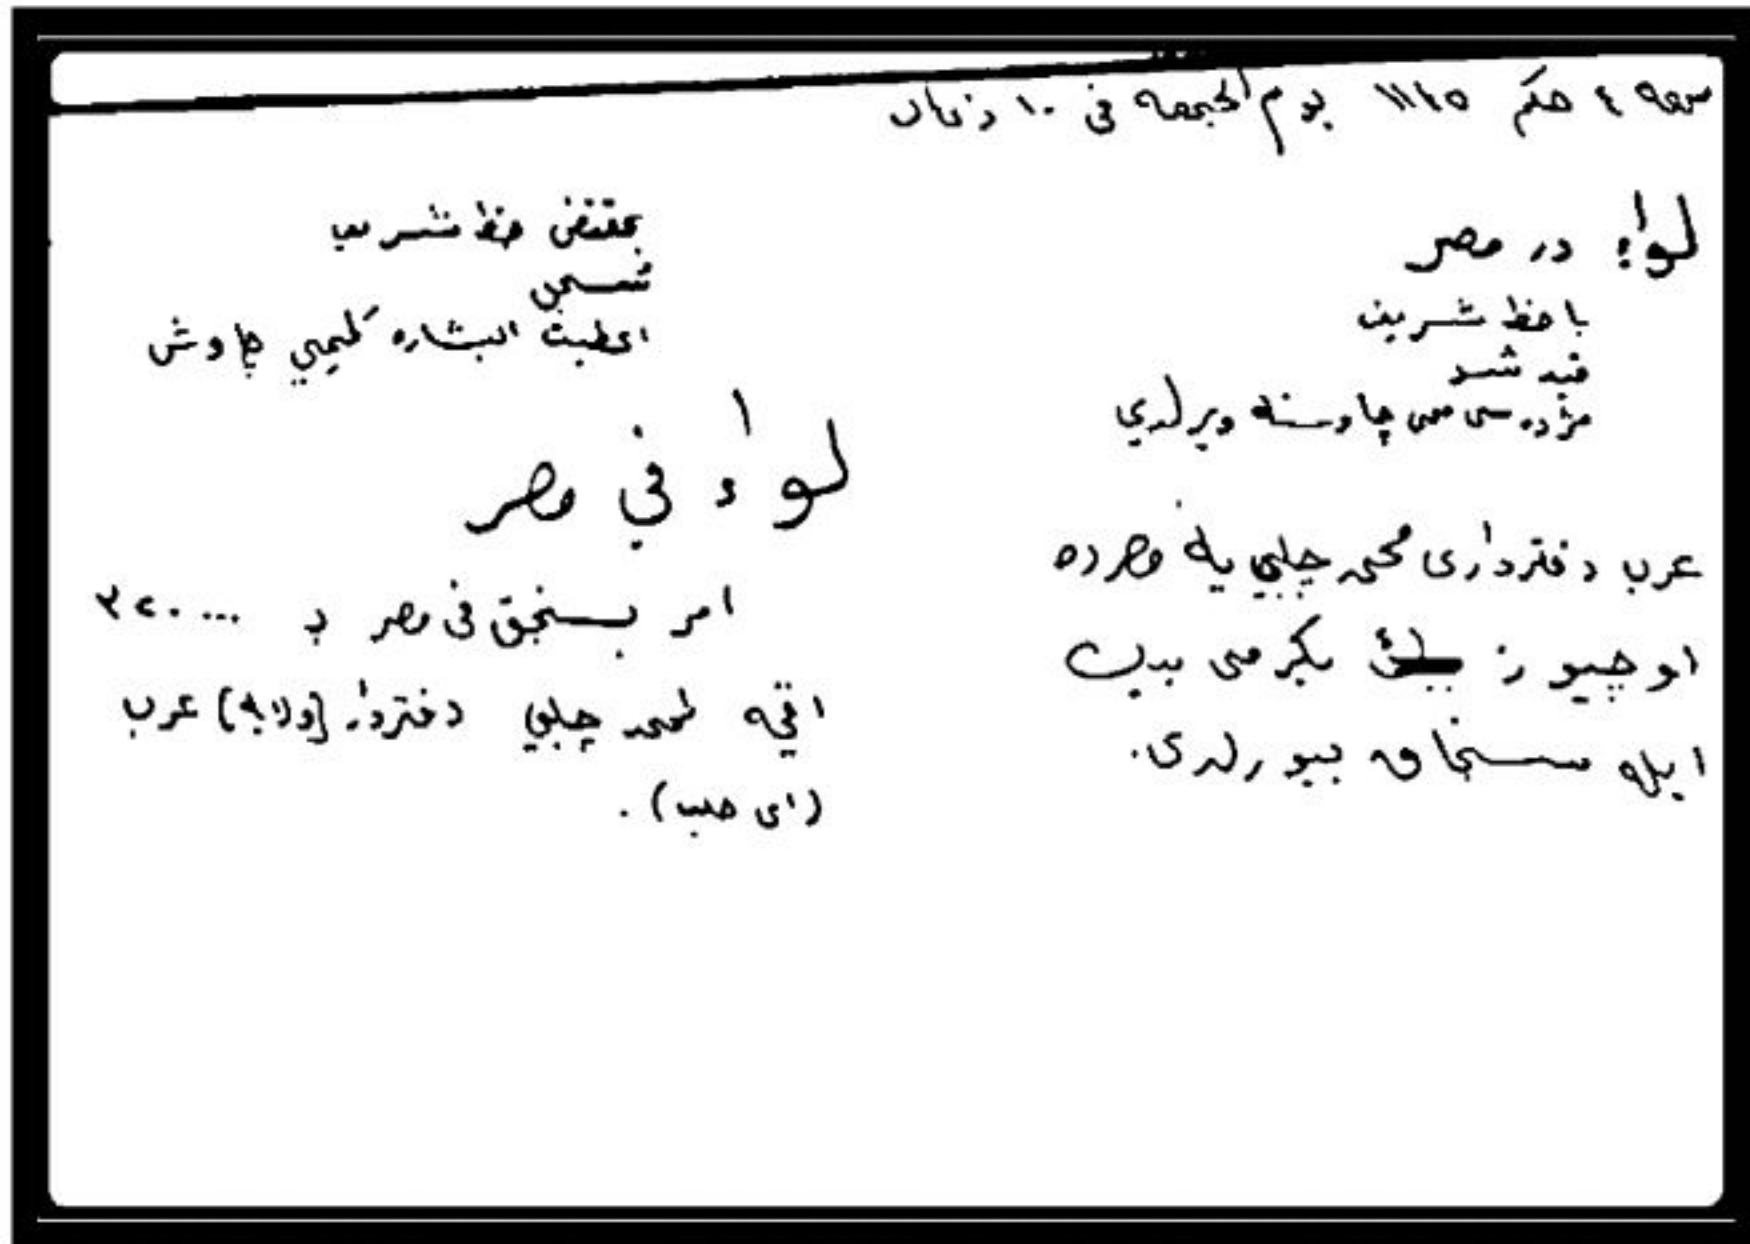 حكم ١١٤٥ يوم الجمعه فى ١٠
لواء در مصر
با خط شريف
قيد شد
مژده سى چاوشنه ويرلدي
عرب دفتردارى محمد چلبي يه مصرده
اوچيوز بيك يكرمى بيك
ايله سنجاق بيورلدى.
بمقتضى خط شريف
سجل
اعطيت البشاره چاوش
لواء في مصر
امر بسنجق فى مصر بـ ٣٢٠٠٠٠
اقچه لمحمد چلبي دفتردار [ولاية] عرب
(اى حلب).